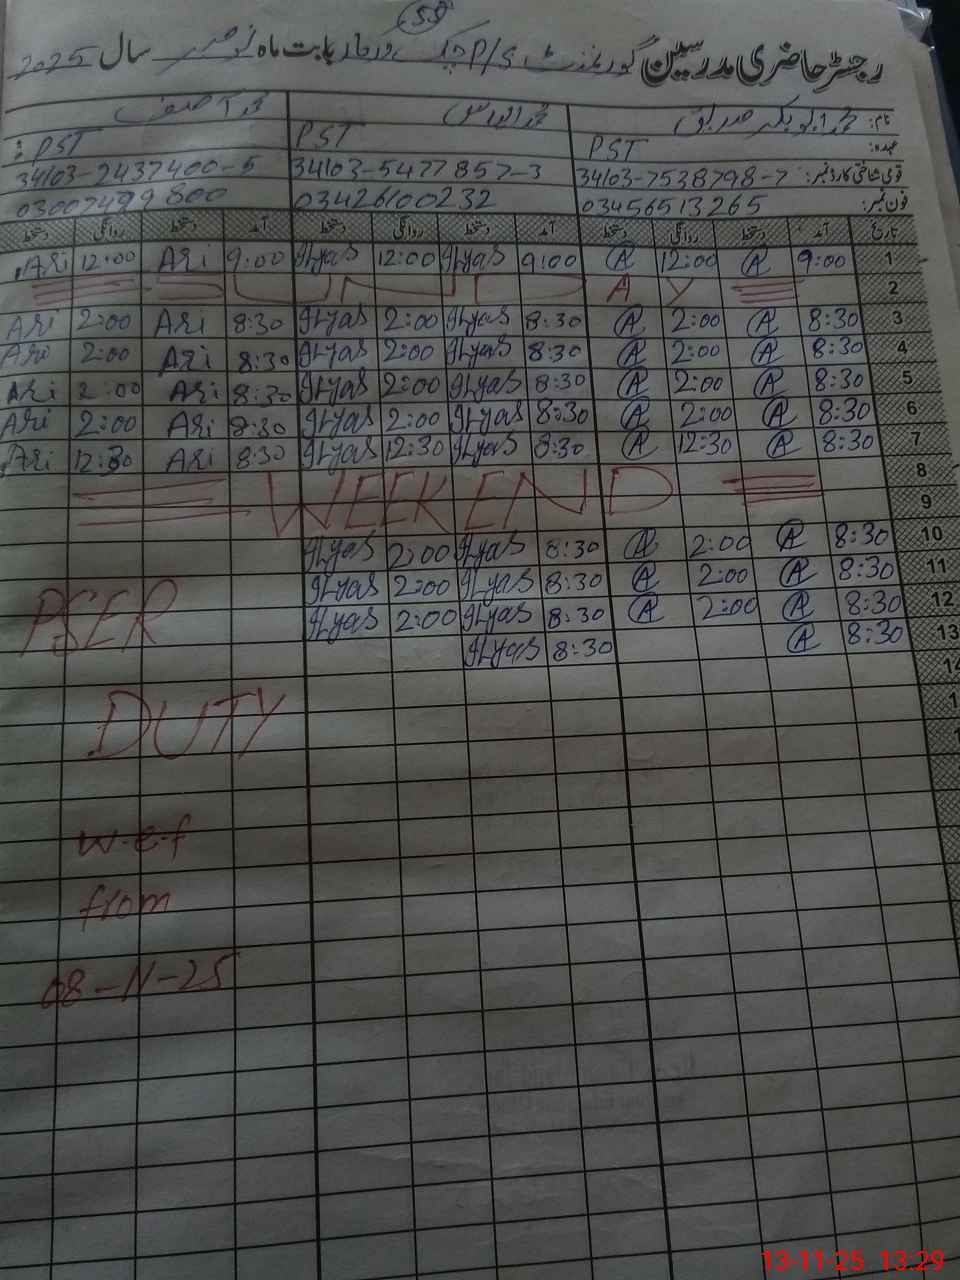 58
رجسٹر حاضری مدرسین گورنمنٹ P/S چک بابت ماہ نومبر سال 2025
نام: محمد ابوبکر صدیق محمد الیاس محمد آصف
عہدہ: PST PST PST
قومی شناختی کارڈ نمبر: 34103-7538798-7 34103-5477857-3 34103-2437400-5
فون نمبر: 03456513265 03426100232 03007499800
تاریخ آمد دستخط روانگی دستخط آمد دستخط روانگی دستخط آمد دستخط روانگی دستخط
1 9:00 A 12:00 A 9:00 ILyas 12:00 ILyas 9:00 ASi 12:00 ASi
2 SUNDAY
3 8:30 A 2:00 A 8:30 ILyas 2:00 ILyas 8:30 ASi 2:00 ASi
4 8:30 A 2:00 A 8:30 ILyas 2:00 ILyas 8:30 ASi 2:00 ASi
5 8:30 A 2:00 A 8:30 ILyas 2:00 ILyas 8:30 ASi 2:00 ASi
6 8:30 A 2:00 A 8:30 ILyas 2:00 ILyas 8:30 ASi 2:00 ASi
7 8:30 A 12:30 A 8:30 ILyas 12:30 ILyas 8:30 ASi 12:30 ASi
8
WEEKEND
9
10 8:30 A 2:00 A 8:30 ILyas 2:00 ILyas
11 8:30 A 2:00 A 8:30 ILyas 2:00 ILyas
12 8:30 A 2:00 A 8:30 ILyas 2:00 ILyas
13 8:30 A 8:30 ILyas
14
PSER
DUTY
w.e.f
from
08-11-25
13-11-25 13:29